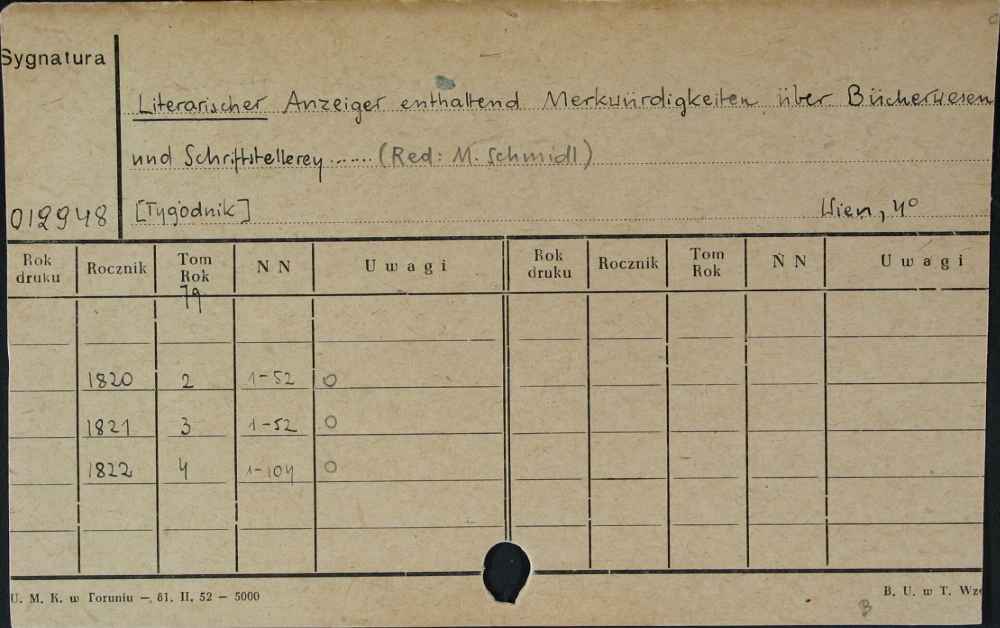 Sygnatura
Literarischer Anzeiger enthaltend Merkwürdigkeiten über Bücherwesen
und Schriftstellerey ...... (Red: M. Schmidl)
012948 [Tygodnik] Wien, 4°
Rok druku Rocznik Tom Rok N N Uwagi Rok druku Rocznik Tom Rok N N Uwagi
1820 2 1-52 O
1821 3 1-52 O
1822 4 1-104 O
U. M. K. w Toruniu — 81. II. 52 — 5000 B. U. w T.
B